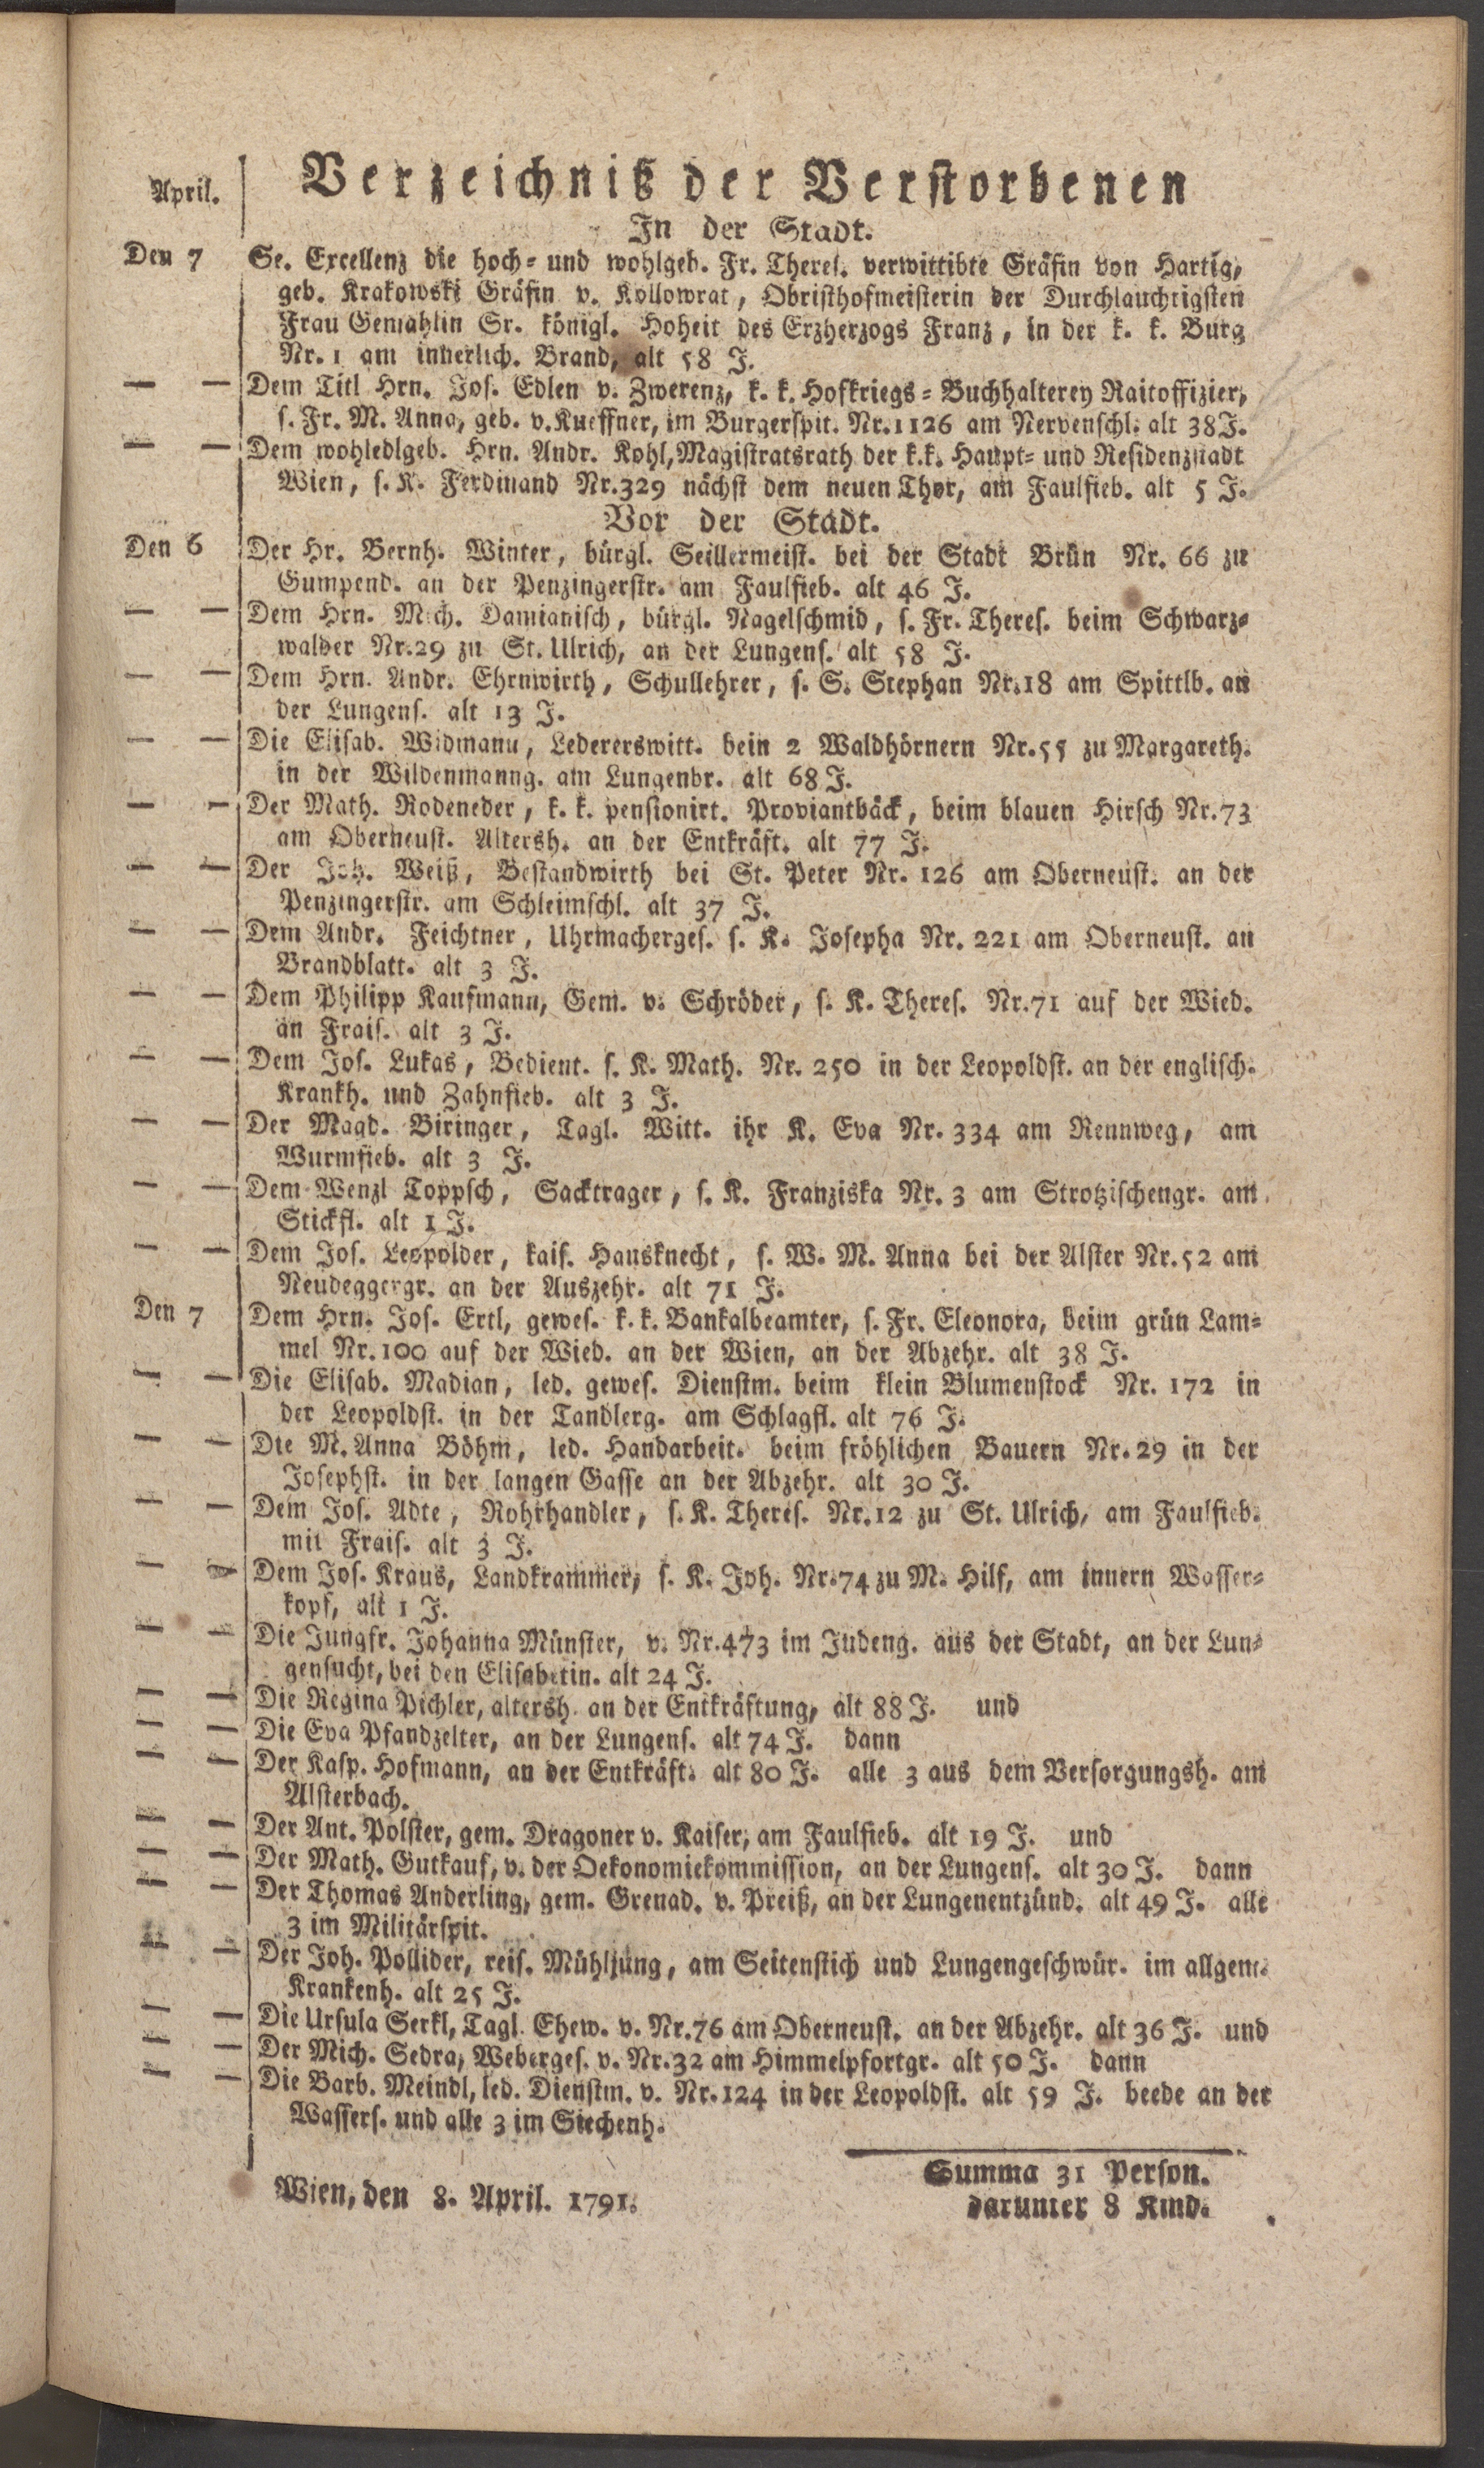 April.
Verzeichniß der Verstorbenen
In der Stadt.
Den 7 Se. Excellenz die hoch= und wohlgeb. Fr. Theres. verwittibte Gräfin von Hartig,
geb. Krakowski Gräfin v. Kollowrat, Obristhofmeisterin der Durchlauchtigsten
Frau Gemahlin Sr. königl. Hoheit des Erzherzogs Franz, in der k. k. Burg
Nr. 1 am innerlich. Brand, alt 58 J.
— — Dem Titl Hrn. Jos. Edlen v. Zwerenz, k. k. Hofkriegs=Buchhalterey Raitoffizier,
s. Fr. M. Anna, geb. v. Kueffner, im Burgerspit. Nr. 1126 am Nervenschl. alt 38 J.
— — Dem wohledlgeb. Hrn. Andr. Kohl, Magistratsrath der k.k. Haupt= und Residenzstadt
Wien, s. K. Ferdinand Nr. 329 nächst dem neuen Thor, am Faulfieb. alt 5 J.
Vor der Stadt.
Den 6 Der Hr. Bernh. Winter, bürgl. Seillermeist. bei der Stadt Brün Nr. 66 zu
Gumpend. an der Penzingerstr. am Faulfieb. alt 46 J.
— — Dem Hrn. Mich. Damianisch, bürgl. Nagelschmid, s. Fr. Theres. beim Schwarz=
walder Nr. 29 zu St. Ulrich, an der Lungens. alt 58 J.
— — Dem Hrn. Andr. Ehrnwirth, Schullehrer, s. S. Stephan Nr. 18 am Spittlb. an
der Lungens. alt 13 J.
— — Die Elisab. Widmann, Ledererswitt. bein 2 Waldhörnern Nr. 55 zu Margareth.
in der Wildenmanng. am Lungenbr. alt 68 J.
— — Der Math. Rodeneder, k. k. pensionirt. Proviantbäck, beim blauen Hirsch Nr. 73
am Oberneust. Altersh. an der Entkräft. alt 77 J.
— — Der Joh. Weiß, Bestandwirth bei St. Peter Nr. 126 am Oberneust. an der
Penzingerstr. am Schleimschl. alt 37 J.
— — Dem Andr. Feichtner, Uhrmacherges. s. K. Josepha Nr. 221 am Oberneust. an
Brandblatt. alt 3 J.
— — Dem Philipp Kaufmann, Gem. v. Schröder, s. K. Theres. Nr. 71 auf der Wied.
an Frais. alt 3 J.
— — Dem Jos. Lukas, Bedient. s. K. Math. Nr. 250 in der Leopoldst. an der englisch.
Krankh. und Zahnfieb. alt 3 J.
— — Der Magd. Biringer, Tagl. Witt. ihr K. Eva Nr. 334 am Rennweg, am
Wurmfieb. alt 3 J.
— — Dem Wenzl Toppsch, Sacktrager, s. K. Franziska Nr. 3 am Strotzischengr. am
Stickfl. alt 1 J.
— — Dem Jos. Leopolder, kais. Hausknecht, s. W. M. Anna bei der Alster Nr. 52 am
Neudeggergr. an der Auszehr. alt 71 J.
Den 7 Dem Hrn. Jos. Ertl, gewes. k. k. Bankalbeamter, s. Fr. Eleonora, beim grün Lam=
mel Nr. 100 auf der Wied. an der Wien, an der Abzehr. alt 38 J.
— — Die Elisab. Madian, led. gewes. Dienstm. beim klein Blumenstock Nr. 172 in
der Leopoldst. in der Tandlerg. am Schlagfl. alt 76 J.
— — Die M. Anna Böhm, led. Handarbeit. beim fröhlichen Bauern Nr. 29 in der
Josephst. in der langen Gasse an der Abzehr. alt 30 J.
— — Dem Jos. Adte, Rohrhandler, s. K. Theres. Nr. 12 zu St. Ulrich, am Faulfieb.
mit Frais. alt 3 J.
— — Dem Jos. Kraus, Landkrammer, s. K. Joh. Nr. 74 zu M. Hilf, am innern Wasser=
kopf, alt 1 J.
— — Die Jungfr. Johanna Münster, v. Nr. 473 im Judeng. aus der Stadt, an der Lun=
gensucht, bei den Elisabetin. alt 24 J.
— — Die Regina Pichler, altersh. an der Entkräftung, alt 88 J. und
— — Die Eva Pfandzelter, an der Lungens. alt 74 J. dann
— — Der Kasp. Hofmann, an der Entkräft. alt 80 J. alle 3 aus dem Versorgungsh. am
Alsterbach.
— — Der Ant. Polster, gem. Dragoner v. Kaiser, am Faulfieb. alt 19 J. und
— — Der Math. Gutkauf, v. der Oekonomiekommission, an der Lungens. alt 30 J. dann
— — Der Thomas Anderling, gem. Grenad. v. Preiß, an der Lungenentzünd. alt 49 J. alle
3 im Militärspit.
— — Der Joh. Pollider, reis. Mühljung, am Seitenstich und Lungengeschwür. im allgem.
Krankenh. alt 25 J.
— — Die Ursula Serkl, Tagl. Ehew. v. Nr. 76 am Oberneust. an der Abzehr. alt 36 J. und
— — Der Mich. Sedra, Weberges. v. Nr. 32 am Himmelpfortgr. alt 50 J. dann
— — Die Barb. Meindl, led. Dienstm. v. Nr. 124 in der Leopoldst. alt 59 J. beede an der
Wassers. und alle 3 im Siechenh.
Summa 31 Person.
darunter 8 Kind.
Wien, den 8. April. 1791.